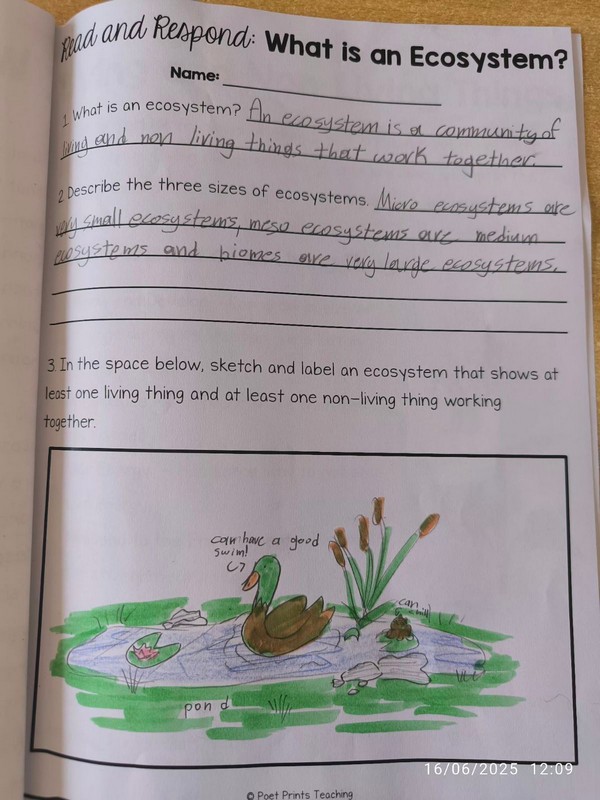 Read and Respond: What is an Ecosystem?
Name:
1. What is an ecosystem? An ecosystem is a community of
living and non living things that work together.
2. Describe the three sizes of ecosystems. Micro ecosystems are
very small ecosystems, meso ecosystems are medium
ecosystems and biomes are very large ecosystems.
3. In the space below, sketch and label an ecosystem that shows at
least one living thing and at least one non-living thing working
together.
can have a good
swim!
can
chill
pond
16/06/2025 12:09
© Poet Prints Teaching